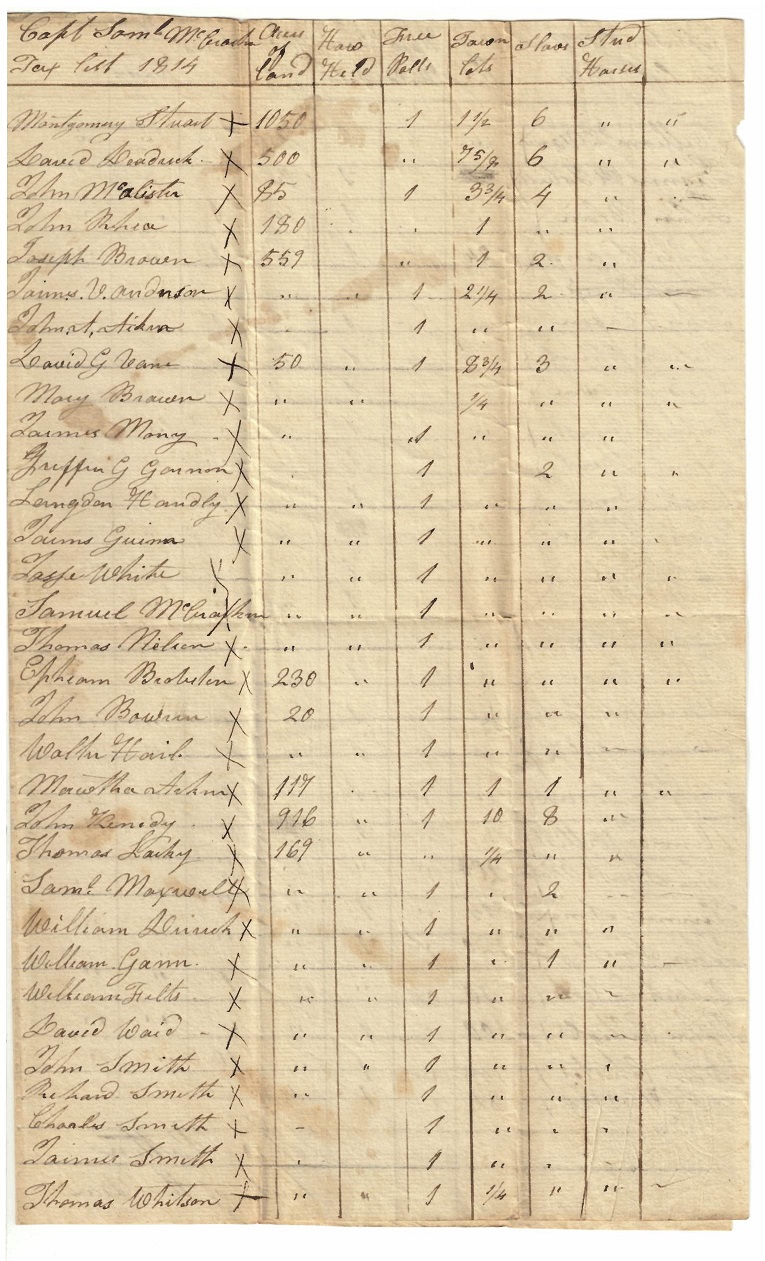 Capt Saml McCrackn Acres of Land How Held Free Polls Town Lots Slaves Stud Horses
Tax list 1814
Montgomery Stuart X 1050 1 1 1/2 6 " "
David Deadrick X 500 " 7 5/8 6 " "
John McAlister X 85 1 3 3/4 4 "
John Rhea X 180 1 " "
Joseph Brown X 559 " 1 2 "
Jaims. V. Andrson X " " 1 2 1/4 2 "
John A. Aikn X 1 " "
David G Vanc X 50 " 1 8 3/4 3 " "
Mary Brown X " " 1/4 " " "
Jaimes Mony X " 1 " " "
Griffin G Gannon X 1 2 " "
Langdon Handly X " " 1 " " "
Jaims Guinn X " " 1 " " "
White X " " 1 " " " "
Samuel McCrackn " " 1 " " "
Thomas Nelson X " " 1 " " " "
Ephream Brobston X 230 " 1 " " " "
John Bowrun X 20 1 " " "
Walter Hail X " " 1 " " "
Mawtha Aikn X 117 1 1 1 " "
John Kenedy X 916 " 1 10 8 "
Thomas Lacky X 169 " " 1/4 " "
Saml Maxwell X " " 1 2
William X " " 1 " " "
William Gann X " " 1 1 "
William Felts X " " 1 " "
David Waid X " " 1 " " "
John Smith X " " 1 " " "
Richard Smith X " 1 " " "
Charles Smith X 1 " "
Jaimes Smith X 1 "
Thomas Whitson X " " 1 1/4 " "